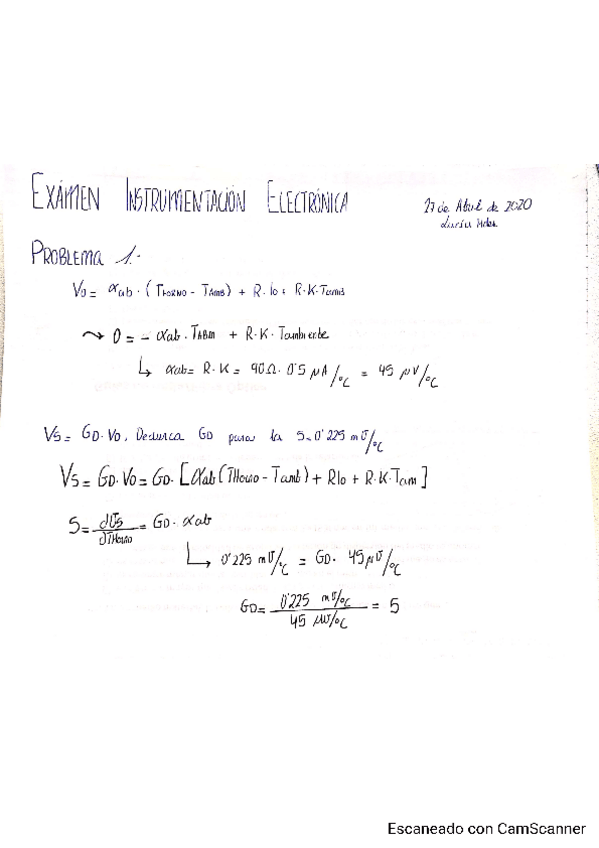 EXÁMEN INSTRUMENTACIÓN ELECTRÓNICA
27 de Abril de 2020
PROBLEMA 1.-
Vo = αab · (THORNO - TAMB) + R·Io + R·K·Tamb
↝ 0 = - αab · TABM + R·K·Tambiente
↳ αab = R·K = 90Ω · 0'5 μA/°C = 45 μV/°C
Vs = GD·Vo, Deduzca GD para la S=0'225 mV/°C
Vs = GD·Vo = GD·[αab(THorno - Tamb) + RIo + R·K·Tam]
S = dVs/dTHorno = GD · αab
↳ 0'225 mV/°C = GD · 45 μV/°C
GD = 0'225 mV/°C / 45 μV/°C = 5
Escaneado con CamScanner